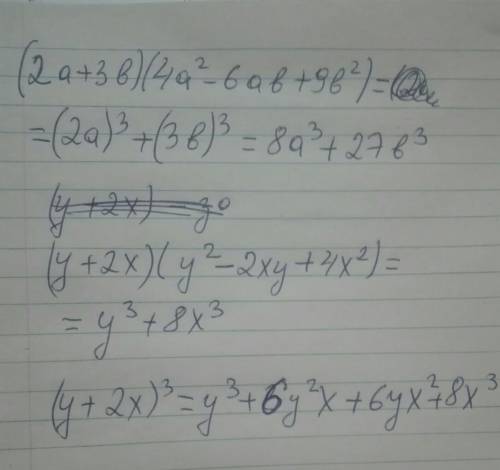 (2a+3в)(4a²-6aв+9в²)=
=(2a)³+(3в)³=8a³+27в³
(y+2x)
(y+2x)(y²-2xy+4x²)=
=y³+8x³
(y+2x)³=y³+6y²x+6yx²+8x³